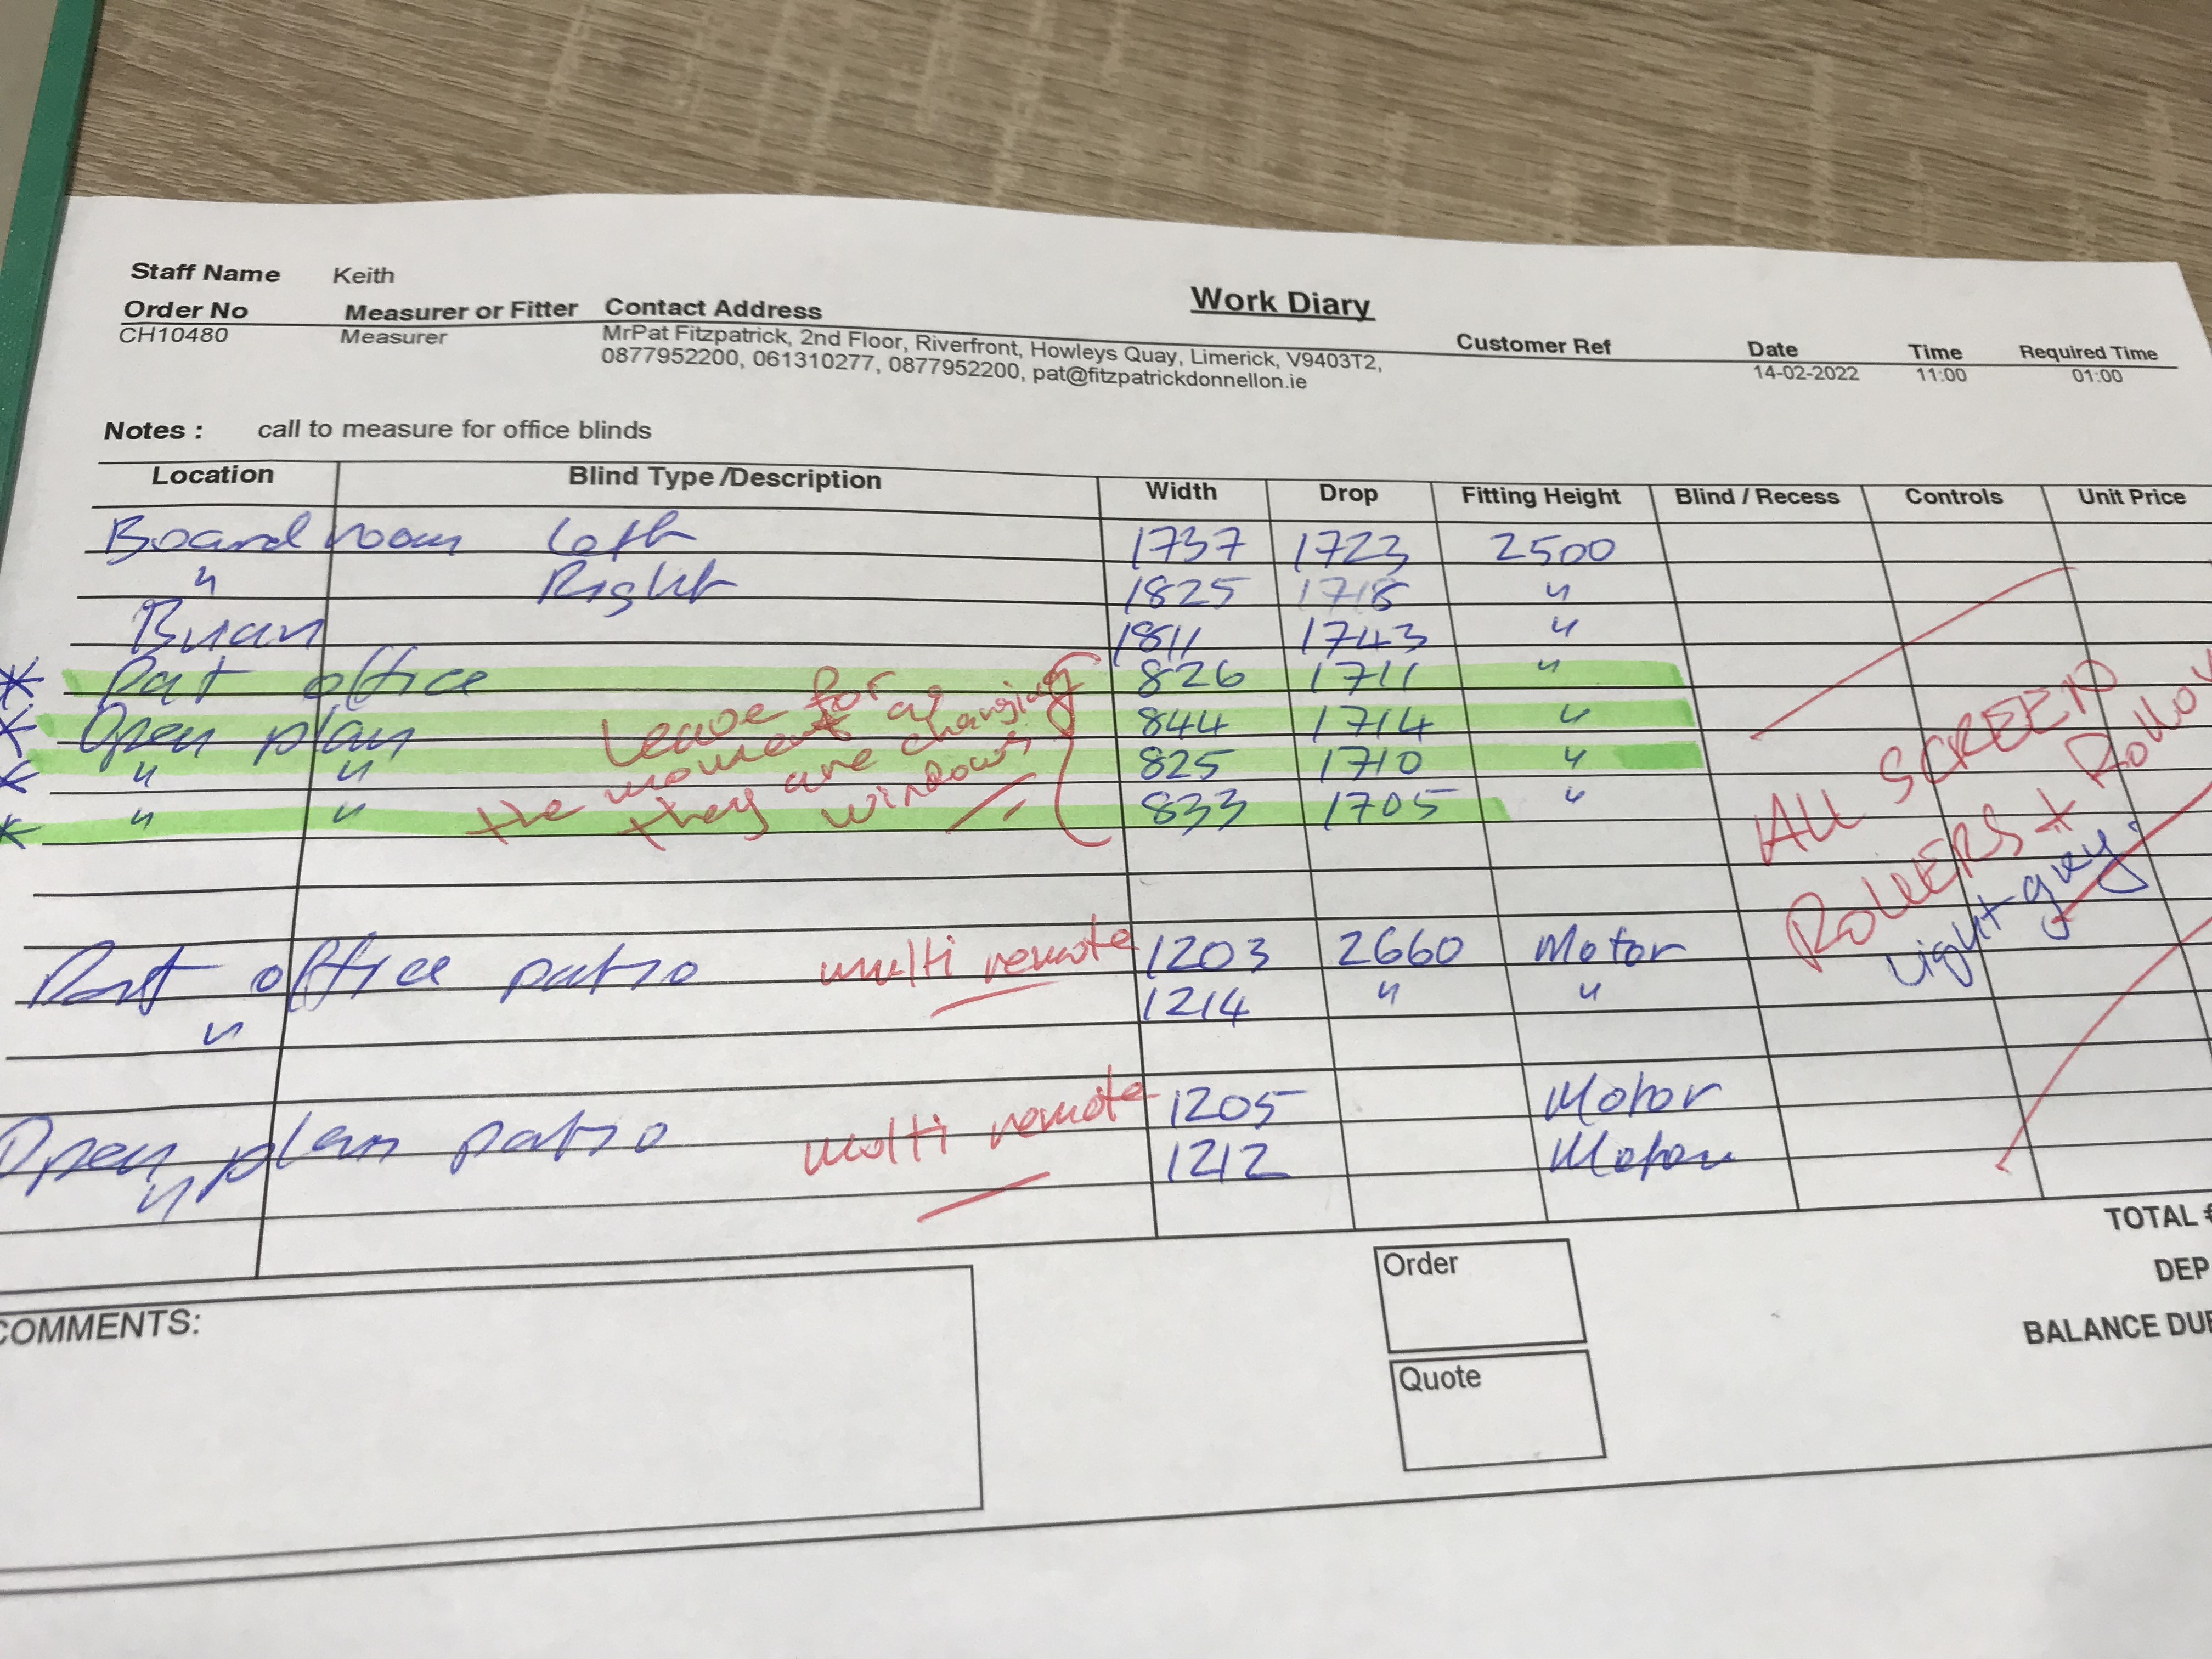 Staff Name Keith
Work Diary
Order No Measurer or Fitter Contact Address Customer Ref Date Time Required Time
CH10480 Measurer MrPat Fitzpatrick, 2nd Floor, Riverfront, Howleys Quay, Limerick, V9403T2, 14-02-2022 11:00 01:00
0877952200, 061310277, 0877952200, pat@fitzpatrickdonnellon.ie
Notes : call to measure for office blinds
Location Blind Type /Description Width Drop Fitting Height Blind / Recess Controls Unit Price
Board room Left 1737 1723 2500
" Right 1825 1718 "
Brian 1811 1743 "
* Pat office 826 1711 "
* Open plan 844 1714 "
* " " 825 1710 "
* " " 833 1705 "
Leave for
the moment as
they are changing
windows
ALL SCREEN
ROLLERS *
Light grey.
Pat office patio multi remote 1203 2660 Motor
" 1214 " "
Open plan patio multi remote 1205 Motor
" 1212 Motor
TOTAL €
DEP
BALANCE DUE
Order
Quote
COMMENTS: